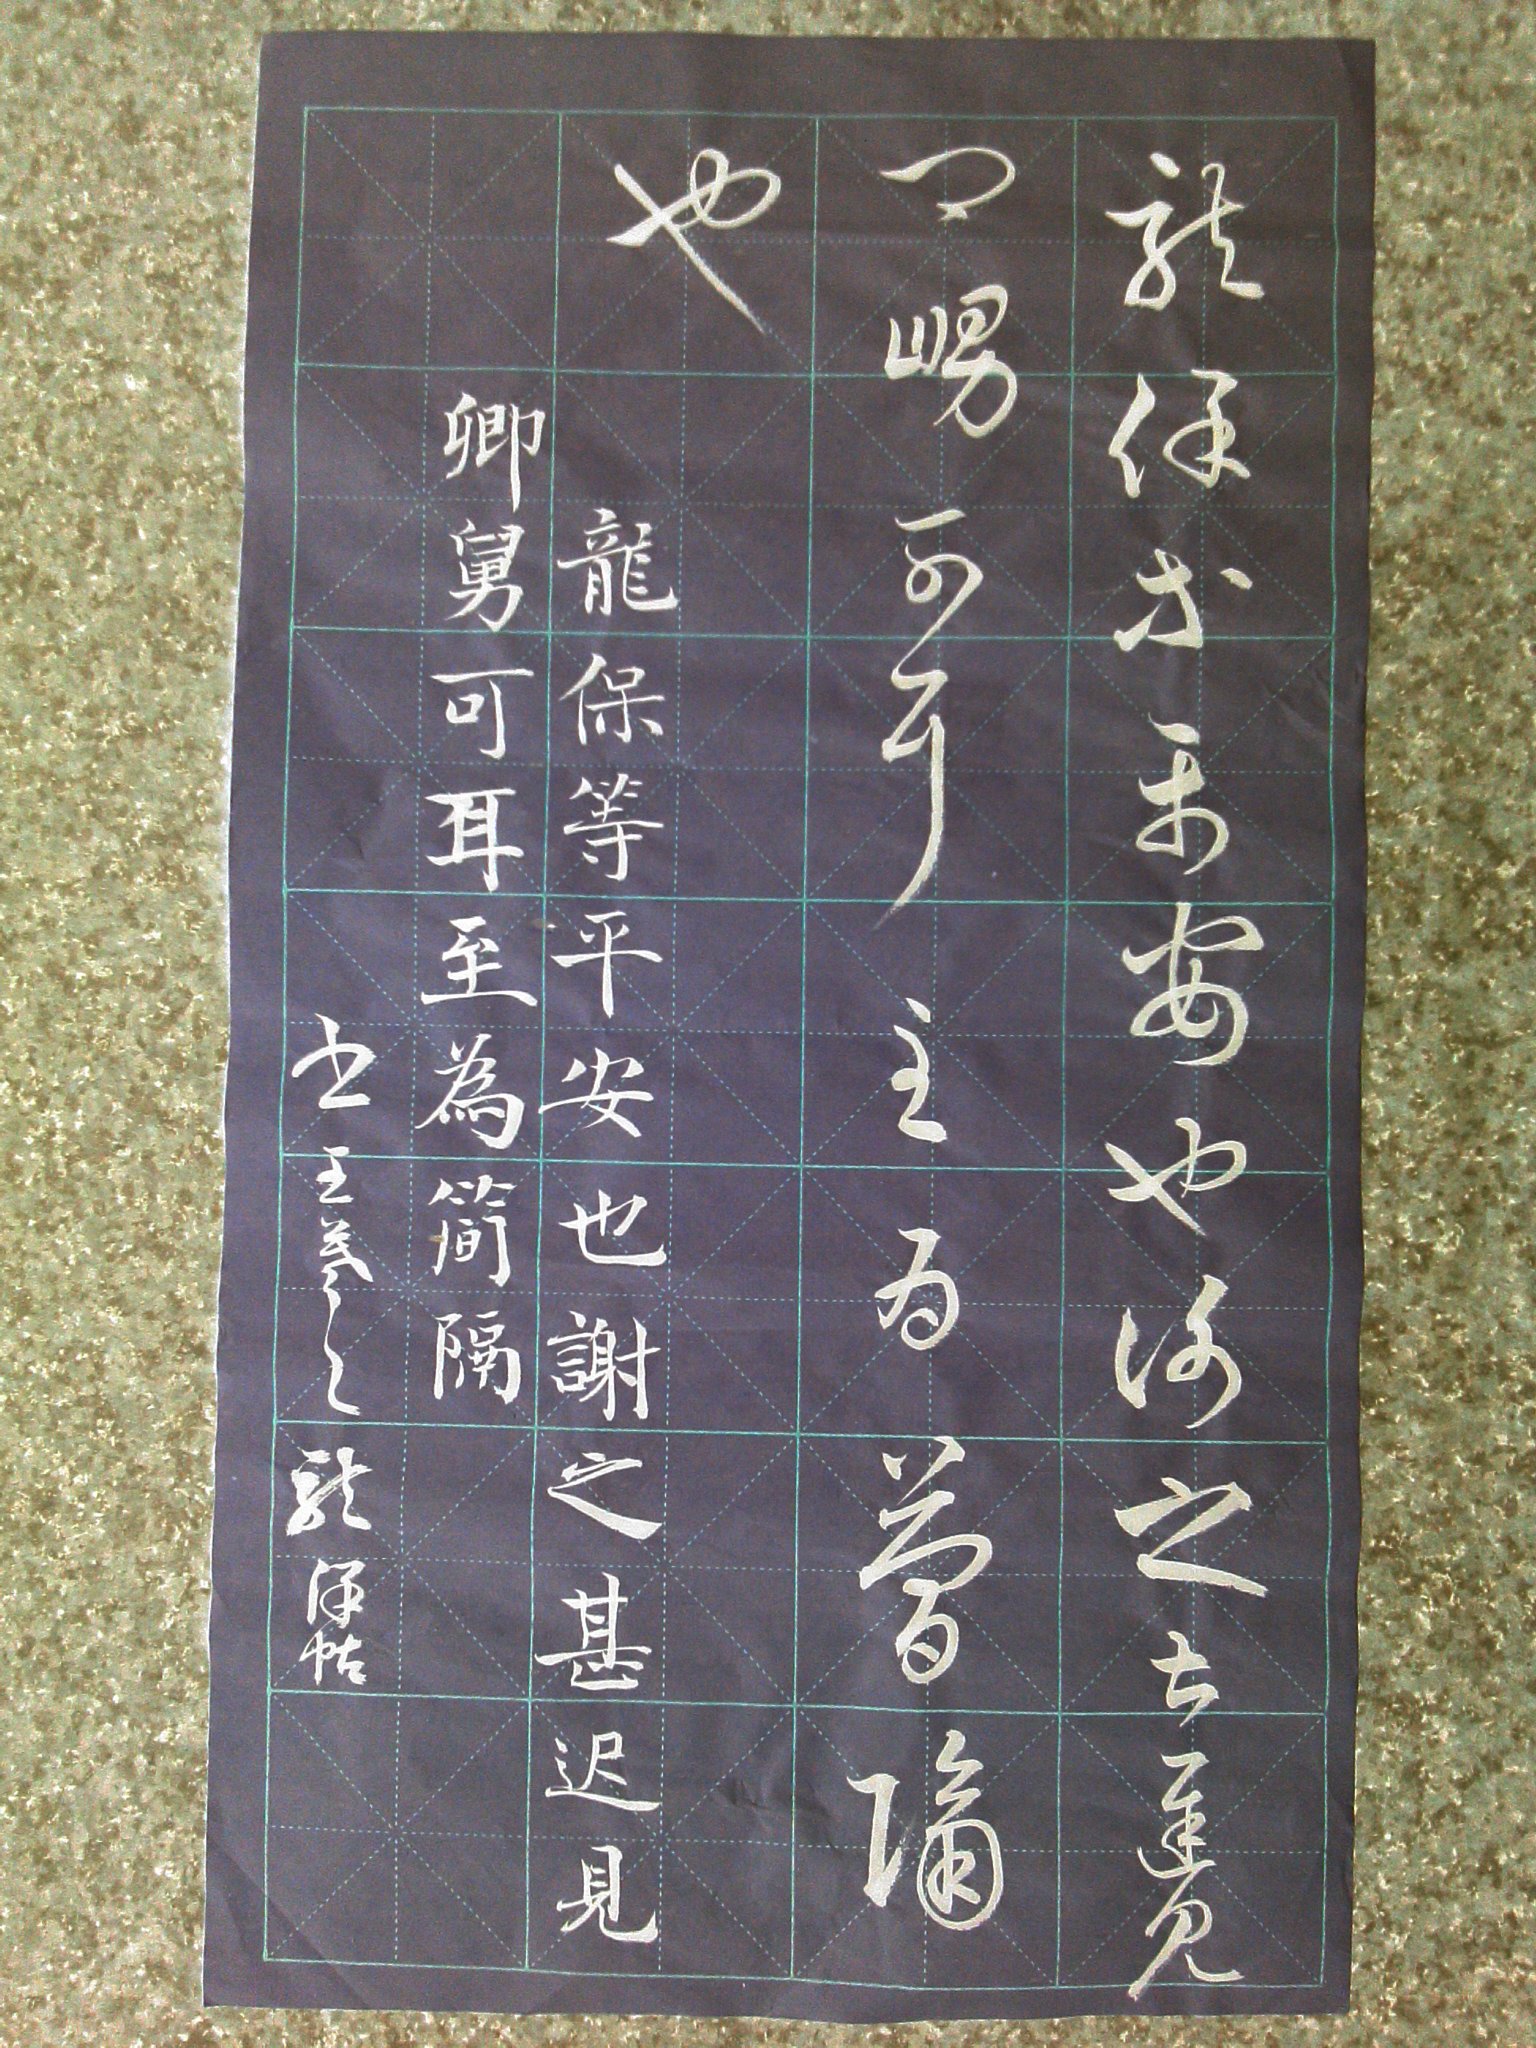 龍保等平安也謝之甚遲見
卿舅可耳至為簡隔
也
龍保等平安也謝之甚迟見
卿舅可耳至為簡隔
書王羲之龍保帖